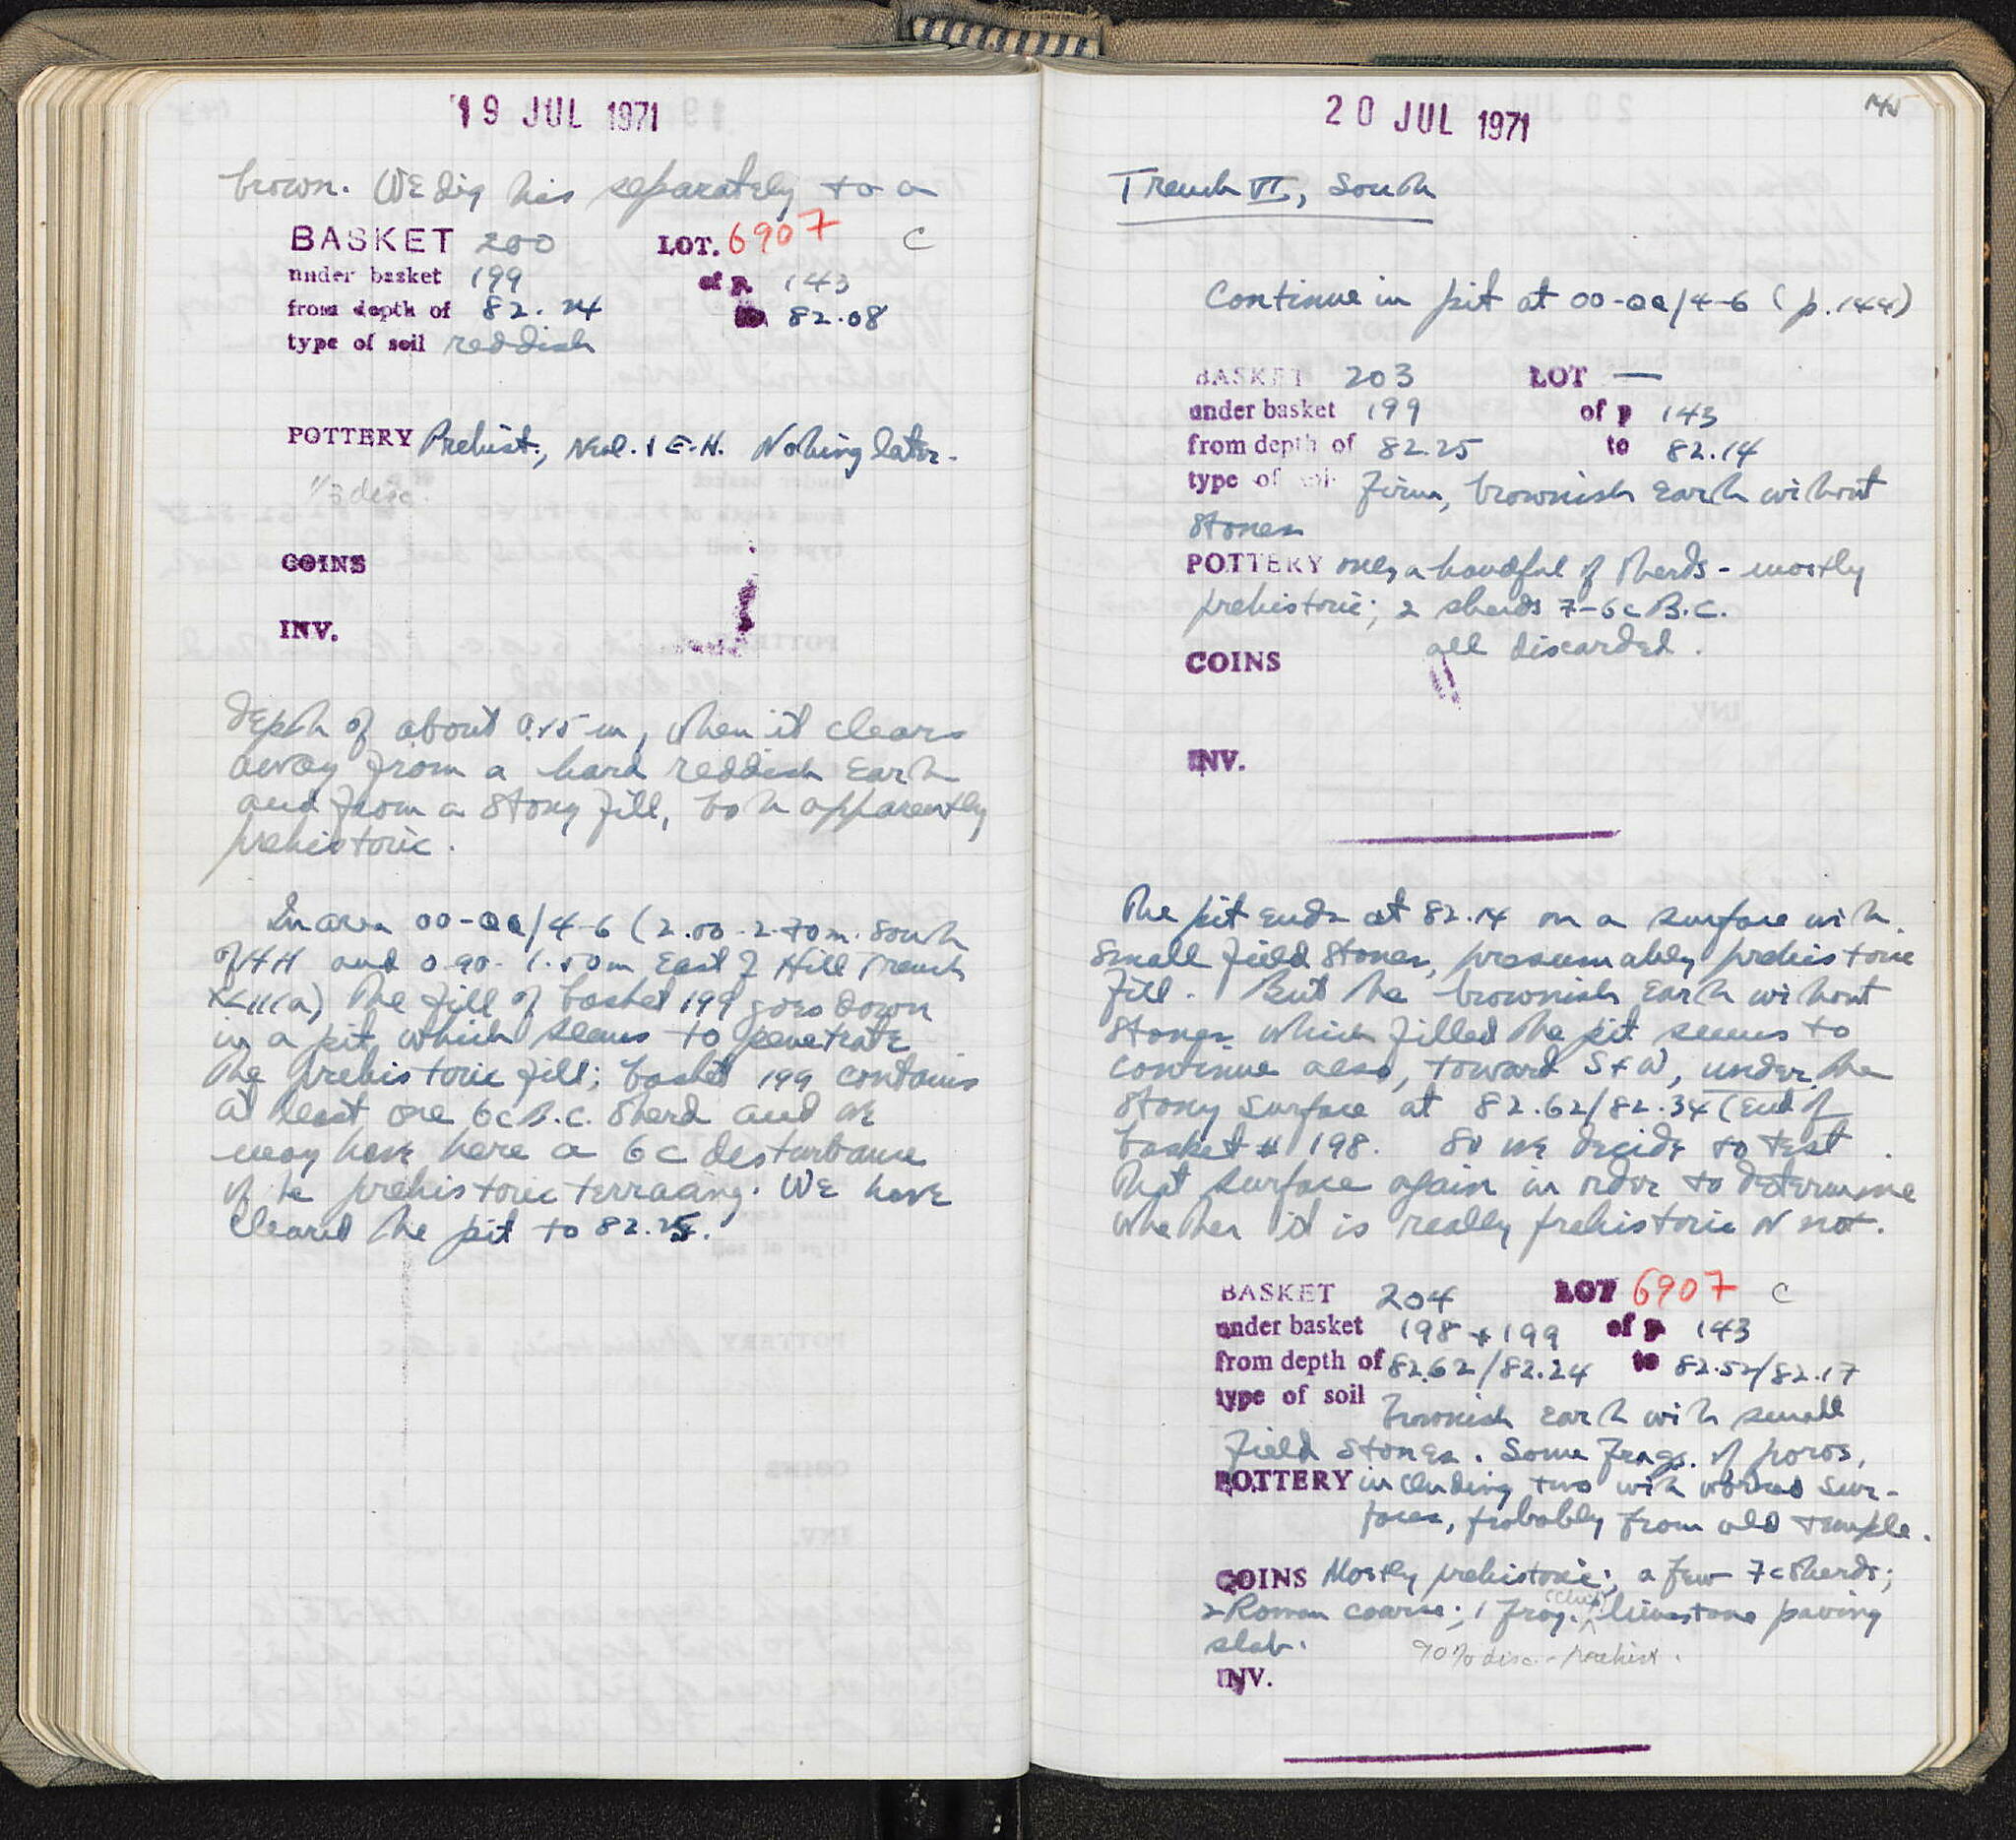 19 JUL 1971
brown. We dig this separately to a
BASKET 200 LOT. 6907 C
under basket 199 of p. 143
from depth of 82.24 to 82.08
type of soil reddish
POTTERY Prehist., Neol. & E.H. Nothing later.
1/3 disc.
COINS
INV.
depth of about 0.15 m, when it clears
away from a hard reddish earth
and from a stony fill, both apparently
prehistoric.
In area 00-QQ/4-6 (2.00-2.70 m. south
of HH and 0.90-1.50m East of Hill Trench
The fill of basket 199 goes down
in a pit, which seems to penetrate
the prehistoric fill; basket 199 contains
at least one 6c B.C. sherd and we
may have here a 6c disturbance
of the prehistoric terracing. We have
cleared the pit to 82.25.
20 JUL 1971
145
Trench VI, South
Continue in pit at 00-QQ/4-6 (p. 144)
BASKET 203 LOT —
under basket 199 of p 143
from depth of 82.25 to 82.14
type of soil Firm, brownish earth without
stones
POTTERY only a handful of sherds - mostly
prehistoric; 2 sherds 7-6c B.C.
all discarded.
COINS
INV.
The pit ends at 82.14 on a surface with
small field stones, presumably prehistoric
fill. But the brownish earth without
stones which filled the pit seems to
continue also, toward S + W, under the
stony surface at 82.62/82.34 (end of
basket # 198. So we decide to test
that surface again in order to determine
whether it is really prehistoric or not.
BASKET 204 LOT 6907 C
under basket 198 + 199 of p 143
from depth of 82.62/82.24 to 82.52/82.17
type of soil brownish earth with small
field stones. Some frags. of poros,
POTTERY including two with worked sur-
faces, probably from old temple.
COINS Mostly prehistoric; a few 7c sherds;
2 Roman coarse; 1 frag. limestone paving
slab.
90% disc. - prehist.
INV.